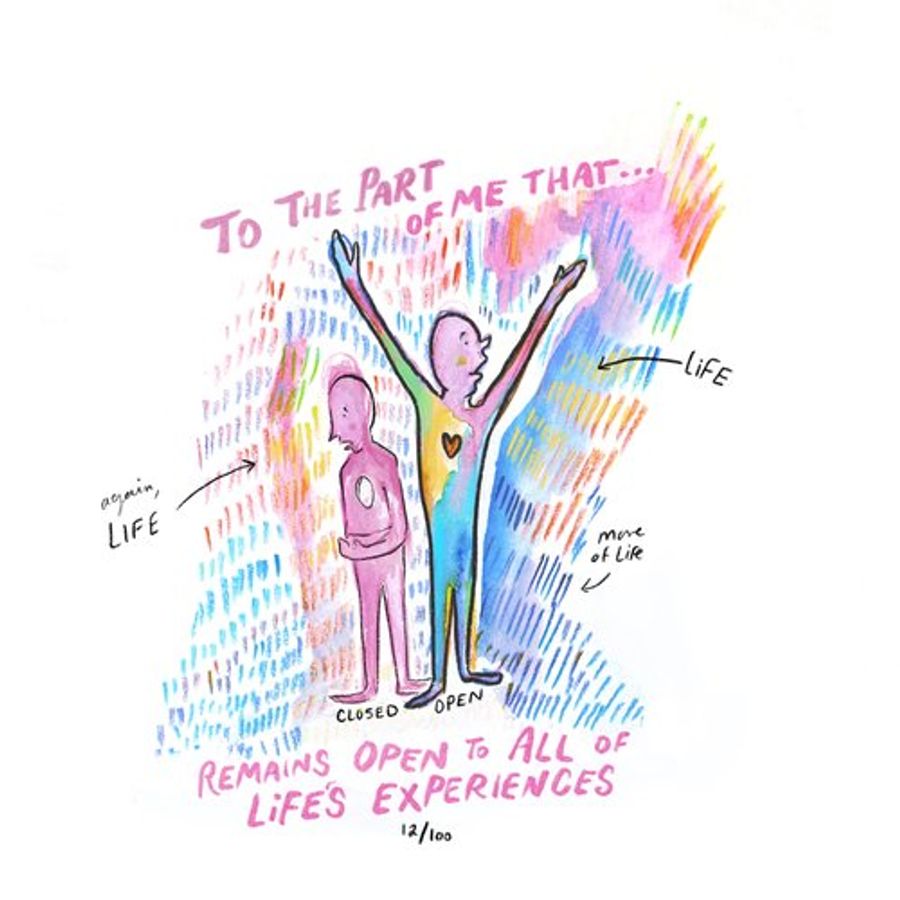 TO THE PART
OF ME THAT...
LiFE
again,
LIFE
more
of Life
CLOSED OPEN
REMAINS OPEN TO ALL OF
LiFE'S EXPERIENCES
12/100